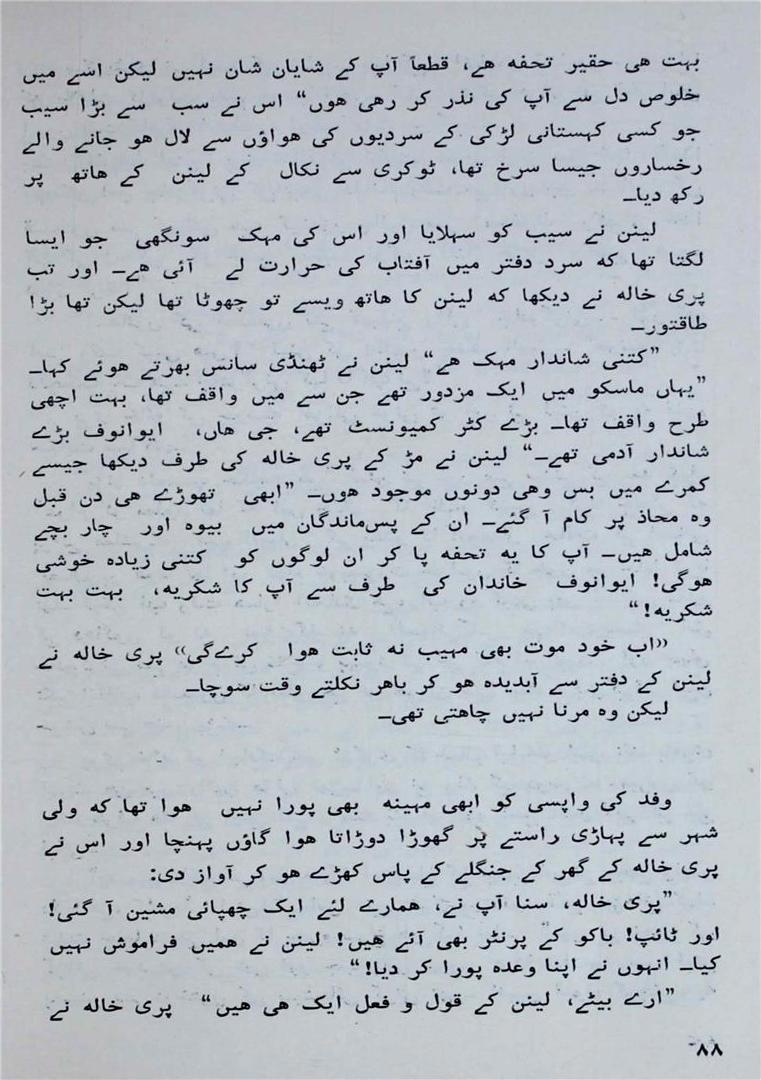 بہت ھی حقیر تحفہ ھے، قطعاً آپ کے شایان شان نہیں لیکن اسے میں
خلوص دل سے آپ کی نذر کر رھی ھوں“ اس نے سب سے بڑا سیب
جو کسی کہستانی لڑکی کے سردیوں کی ھواؤں سے لال ھو جانے والے
رخساروں جیسا سرخ تھا، ٹوکری سے نکال کے لینن کے ھاتھ پر
رکھ دیا۔
لینن نے سیب کو سہلایا اور اس کی مہک سونگھی جو ایسا
لگتا تھا کہ سرد دفتر میں آفتاب کی حرارت لے آئی ھے۔ اور تب
پری خالہ نے دیکھا کہ لینن کا ھاتھ ویسے تو چھوٹا تھا لیکن تھا بڑا!
طاقتور۔
”کتنی شاندار مہک ھے“ لینن نے ٹھنڈی سانس بھرتے ھوئے کہا۔
”یہاں ماسکو میں ایک مزدور تھے جن سے میں واقف تھا، بہت اچھی
طرح واقف تھا۔ بڑے کٹر کمیونسٹ تھے، جی ھاں، ایوانوف بڑے
شاندار آدمی تھے۔“ لینن نے مڑ کے پری خالہ کی طرف دیکھا جیسے
کمرے میں بس وھی دونوں موجود ھوں۔ ”ابھی تھوڑے ھی دن قبل
وہ محاذ پر کام آ گئے۔ ان کے پس‌ماندگان میں بیوہ اور چار بچے
شامل ھیں۔ آپ کا یہ تحفہ پا کر ان لوگوں کو کتنی زیادہ خوشی
ھوگی! ایوانوف خاندان کی طرف سے آپ کا شکریہ، بہت بہت
شکریہ!“
«اب خود موت بھی مہیب نہ ثابت ھوا کرے‌گی» پری خالہ نے
لینن کے دفتر سے آبدیدہ ھو کر باھر نکلتے وقت سوچا۔
لیکن وہ مرنا نہیں چاھتی تھی۔
وفد کی واپسی کو ابھی مہینہ بھی پورا نہیں ھوا تھا کہ ولی
شہر سے پہاڑی راستے پر گھوڑا دوڑاتا ھوا گاؤں پہنچا اور اس نے
پری خالہ کے گھر کے جنگلے کے پاس کھڑے ھو کر آواز دی:
”پری خالہ، سنا آپ نے، ھمارے لئے ایک چھپائی مشین آ گئی!
اور ٹائپ! باکو کے پرنٹر بھی آئے ھیں! لینن نے ھمیں فراموش نہیں
کیا۔ انہوں نے اپنا وعدہ پورا کر دیا!“
”ارے بیٹے، لینن کے قول و فعل ایک ھی ھیں“ پری خالہ نے
۸۸